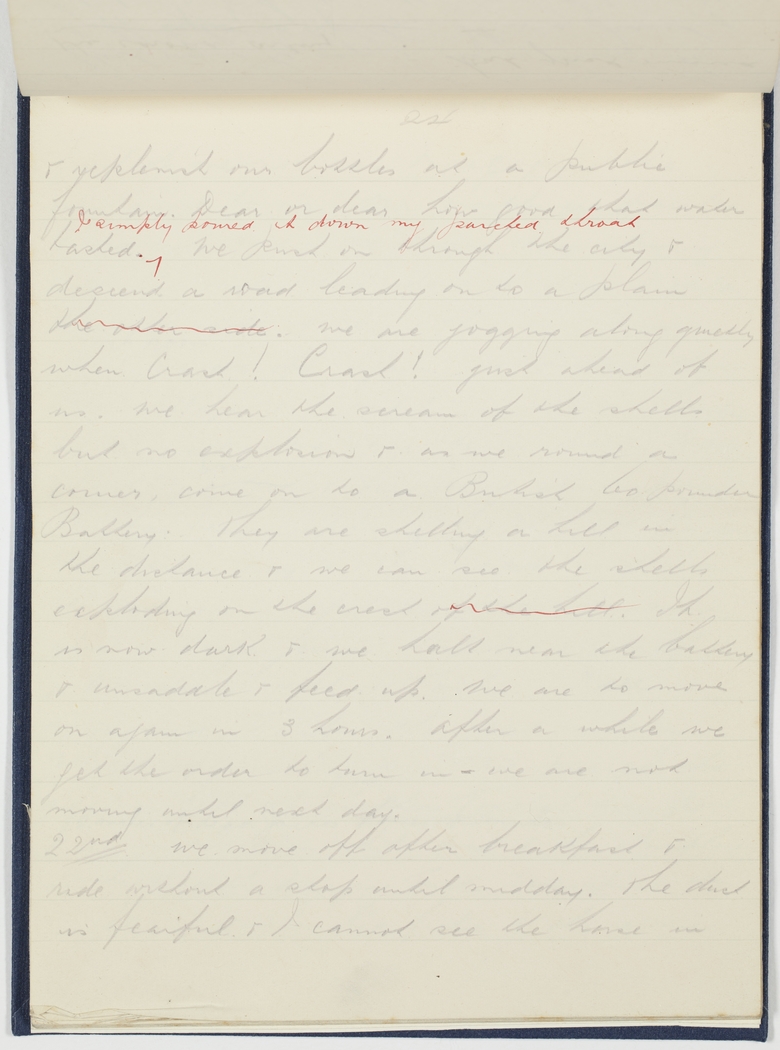 22
& replenish our bottles at a public
fountain. Dear or dear how good that water
I simply poured it down my parched throat
tasted. We push on through the city &
descend a road leading on to a plain
the other side. We are jogging along quietly
when Crash! Crash! just ahead of
us. We hear the scream of the shells
but no explosion & as we round a
corner, come on to a British 60 pounder
Battery. They are shelling a hill in
the distance & we can see the shells
exploding on the crest of the hill. It
is now dark & we halt near the battery
& unsaddle & feed up. We are to move
on again in 3 hours. After a while we
get the order to turn in - we are not
moving until next day.
22nd We move off after breakfast &
ride without a stop until midday. The dust
is fearful & I cannot see the horse in